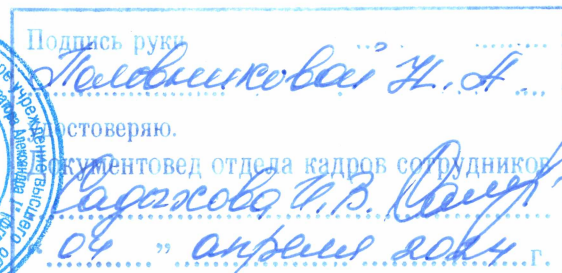 Подпись руки
Половниковой Н. А.
удостоверяю.
Документовед отдела кадров сотрудников
Садыхова И.В.
" 04 " апреля 2024 г.